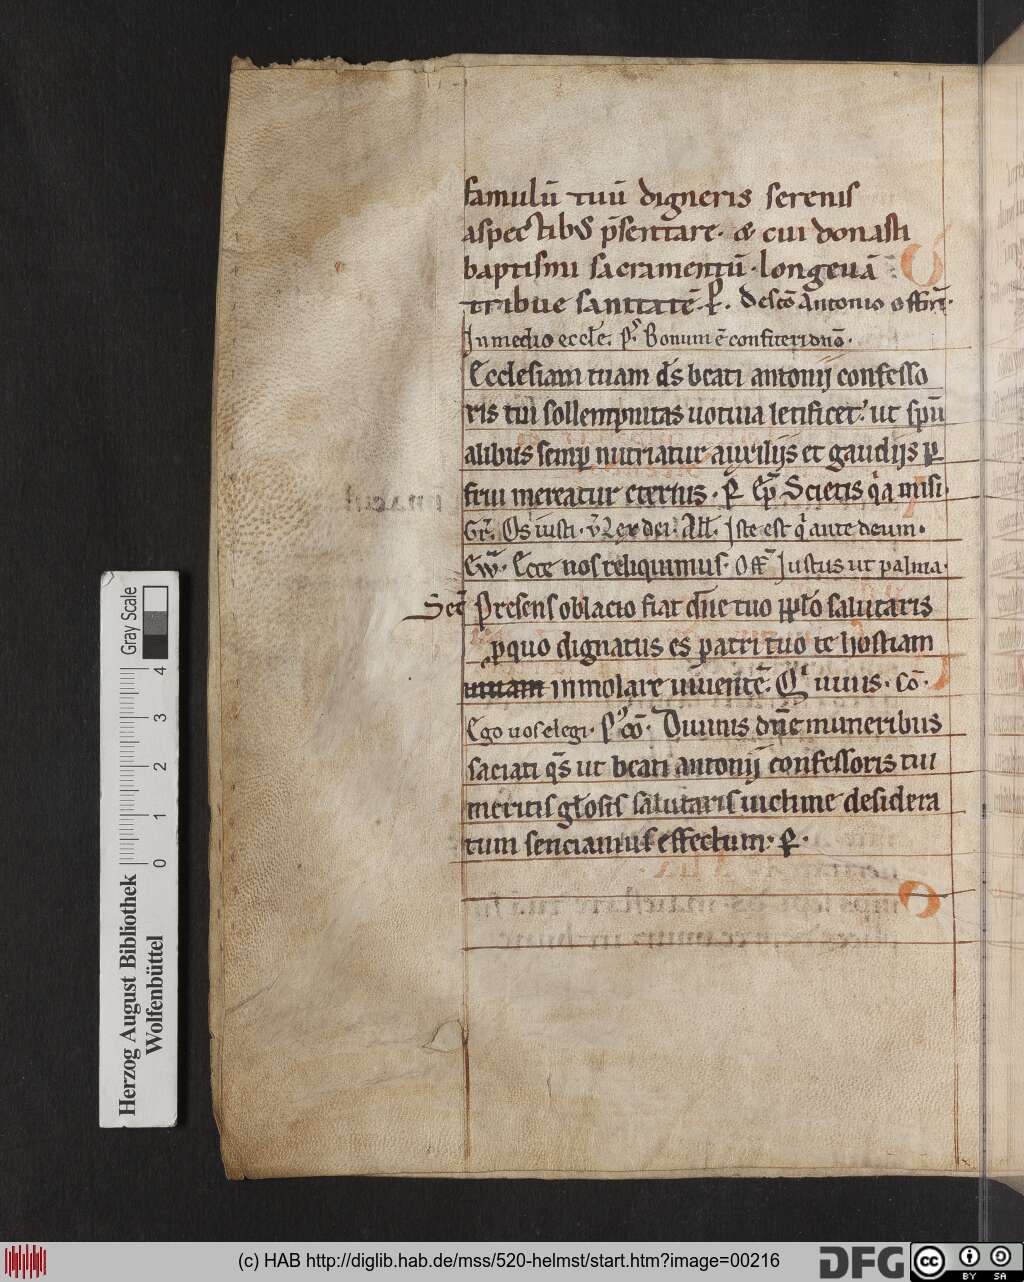 famulū tuū digneris serenis
aspectibꝰ p̄sentare· & cui donasti
baptismi sacramentū· longeuā
tribue sanitatē· ꝑ. De scō Antonio offiū·
In medio eccłe. p̄s Bonum ē confiteri dnō·
Ecclesiam tuam ds̄ beati antonij confesso
ris tui sollempnitas uotiua letificet· ut spū
alibus semꝑ nutriatur auxilijs et gaudijs ꝑ
frui mereatur eternis· ꝑ Ep̄ Scietis qͥa misi·
Gr̄. Os iusti· v̄ Lex dei· Ałł· Iste est qͥ ante deum·
Ew̄· Ecce nos reliquimus· Off̄ Iustus ut palma·
Sec̄ Presens oblacio fiat dn̄e tuo pp̄ło salutaris
ꝑ quo dignatus es patri tuo te hostiam
uiuam inmolare uiuentē· Qͥ uiuis· Cō·
Ego uos elegi· Pꝰ cō· Diuinis dn̄e muneribus
saciati qs̄ ut beati antonij confessoris tui
meritis głosis salutaris uictime desidera
tum senciamus effectum· ꝑ·
Gray Scale
4
3
2
1
0
Herzog August Bibliothek
Wolfenbüttel
(c) HAB http://diglib.hab.de/mss/520-helmst/start.htm?image=00216
DFG
cc BY SA